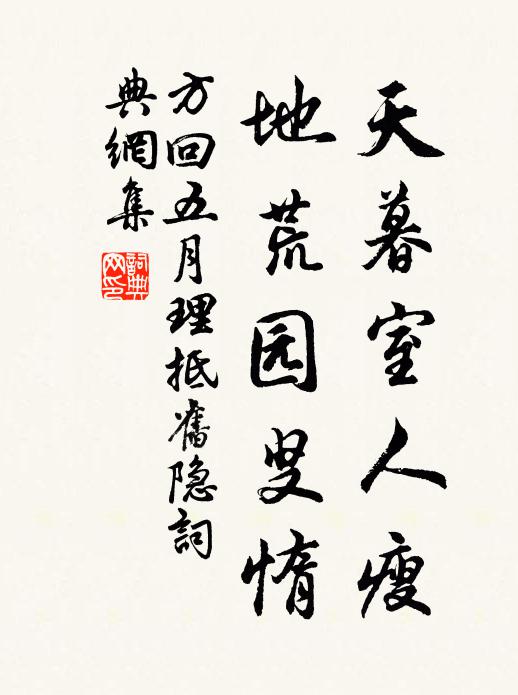 天暮室人瘦
地荒园叟惰
方回五月理抵舊隐詞
典網集
詞典
网印